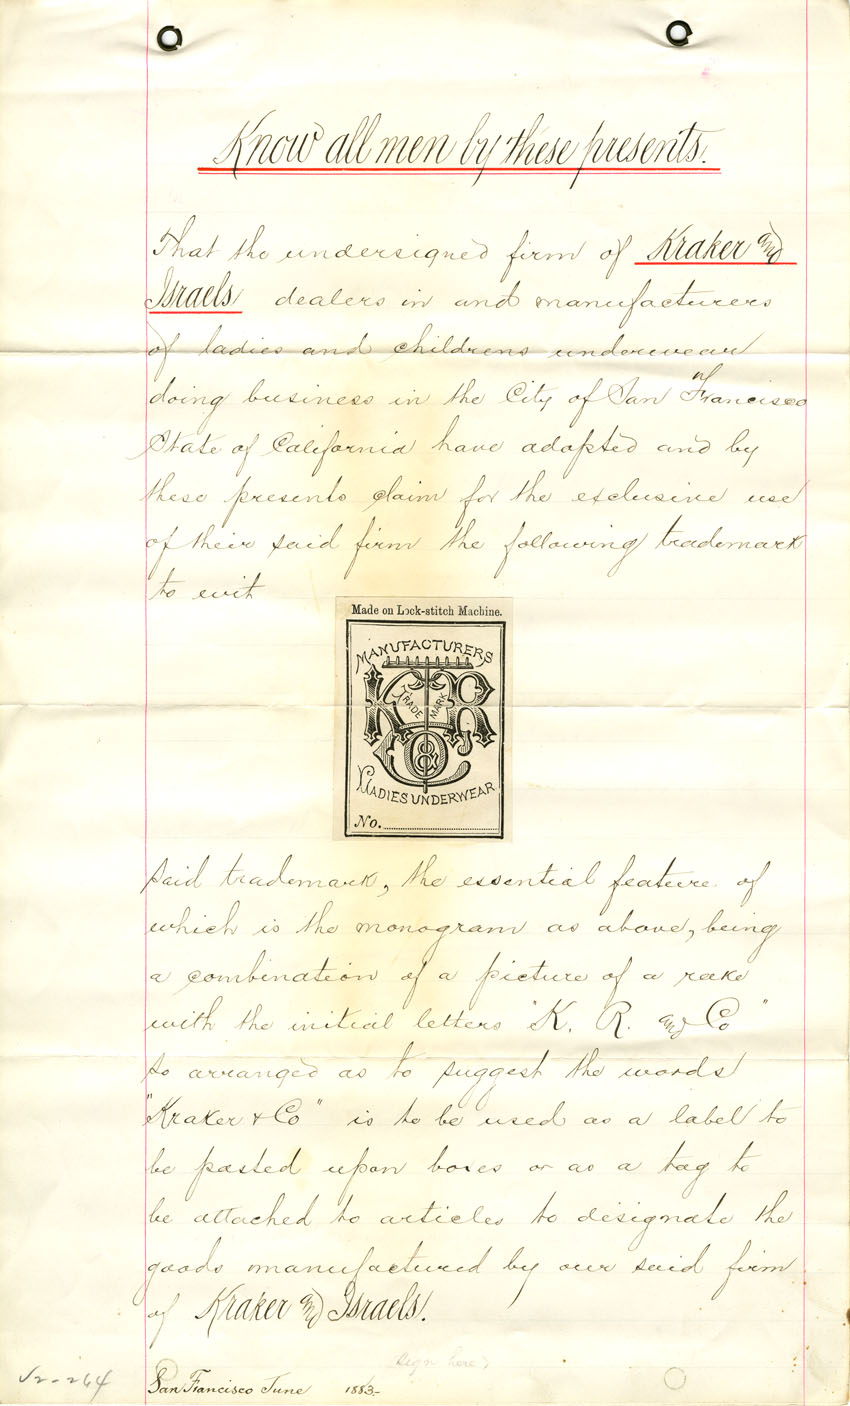 Know all men by these presents.
That the undersigned firm of Kraker and
Israels dealers in and manufacturers
of ladies and childrens underwear
doing business in the City of San Francisco
State of California have adopted and by
these presents claim for the exclusive use
of their said firm the following trademark
to wit
Made on Lock-stitch Machine.
MANUFACTURERS
K R
TRADE MARK
& Co
LADIES UNDERWEAR
No.
said trademark, the essential feature of
which is the monogram as above, being
a combination of a picture of a rake
with the initial letters "K. R. and Co"
so arranged as to suggest the words
"Kraker & Co" is to be used as a label to
be pasted upon boxes or as a tag to
be attached to articles to designate the
goods manufactured by our said firm
of Kraker and Israels.
(Sign here)
San Francisco June 1883-